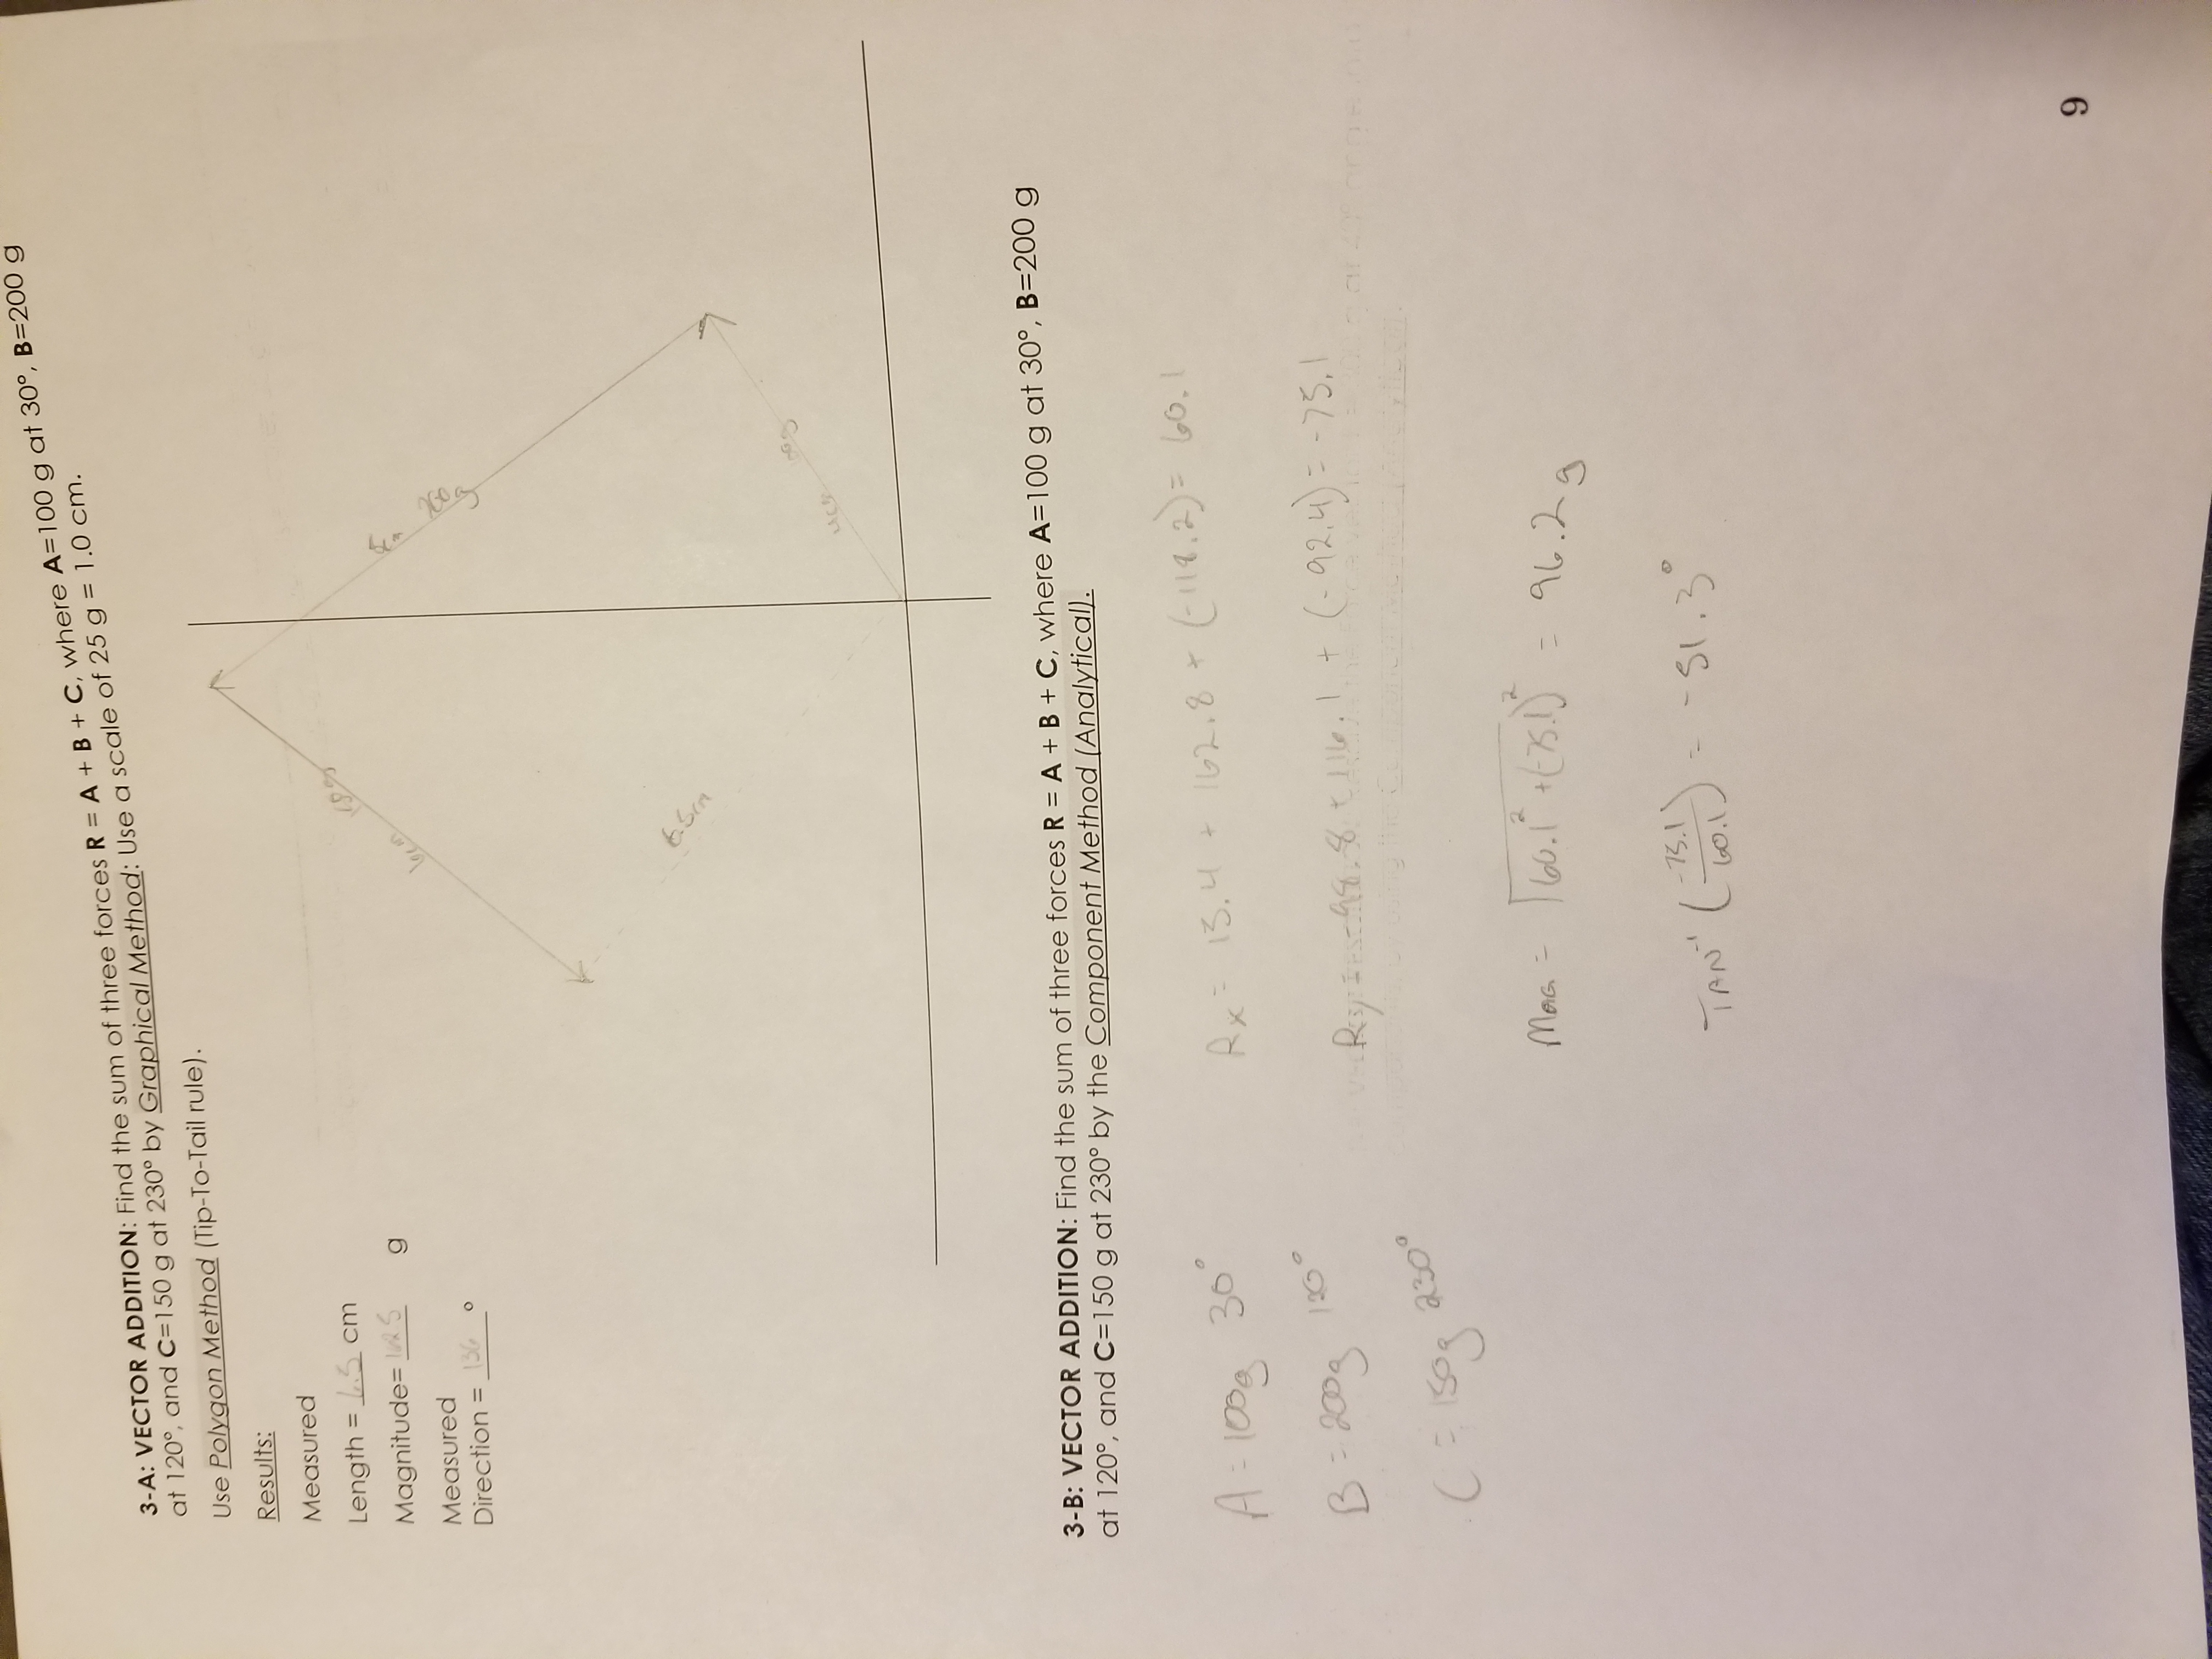 3-A: VECTOR ADDITION: Find the sum of three forces R = A + B + C, where A=100 g at 30°, B=200 g
at 120°, and C=150 g at 230° by Graphical Method: Use a scale of 25 g = 1.0 cm.
Use Polygon Method (Tip-To-Tail rule).
Results:
Measured
Length = 6.5 cm
Magnitude= 162.5 g
Measured
Direction = 136 °
150g
6cm
200g
6.5cm
100g
4cm
3-B: VECTOR ADDITION: Find the sum of three forces R = A + B + C, where A=100 g at 30°, B=200 g
at 120°, and C=150 g at 230° by the Component Method (Analytical).
A = 100g 30°
B = 200g 120°
C = 150g 230°
Rx = 15.4 + 162.8 + (-118.2) = 60.1
Ry = -98.8 + 116.1 + (-92.4) = -75.1
Mag = √60.1² + (-75.1)² = 96.2g
TAN⁻¹ (-75.1/60.1) = -51.3°
9